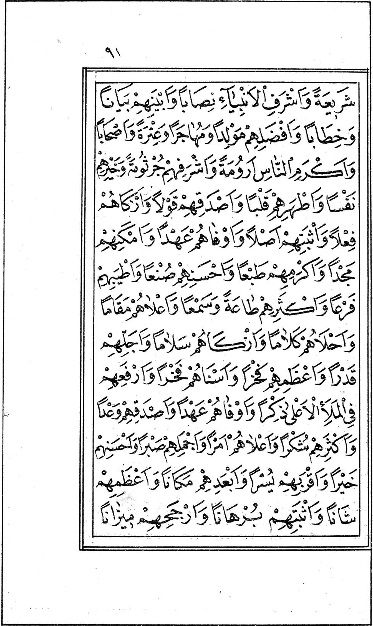 ٩١
شَرِيعَةً وَاَشْرَفِ الْاَنْبِيَاءِ نِصَابًا وَاَبْيَنِهِمْ بَيَانًا
وَخِطَابًا وَاَفْضَلِهِمْ مَوْلِدًا وَمُهَاجَرًا وَعِتْرَةً وَاَصْحَابًا
وَاَكْرَمِ النَّاسِ اَرُومَةً وَاَشْرَفِهِمْ جُرْثُومَةً وَخَيْرِهِمْ
نَفْسًا وَاَطْهَرِهِمْ قَلْبًا وَاَصْدَقِهِمْ قَوْلًا وَاَزْكَاهُمْ
فِعْلًا وَاَثْبَتِهِمْ اَصْلًا وَاَوْفَاهُمْ عَهْدًا وَاَمْكَنِهِمْ
مَجْدًا وَاَكْرَمِهِمْ طَبْعًا وَاَحْسَنِهِمْ صُنْعًا وَاَطْيَبِهِمْ
فَرْعًا وَاَكْثَرِهِمْ طَاعَةً وَسَمْعًا وَاَعْلَاهُمْ مَقَامًا
وَاَحْلَاهُمْ كَلَامًا وَاَزْكَاهُمْ سَلَامًا وَاَجَلِّهِمْ
قَدْرًا وَاَعْظَمِهِمْ فَخْرًا وَاَسْنَاهُمْ فَخْرًا وَاَرْفَعِهِمْ
فِي الْمَلَاِ الْاَعْلَى ذِكْرًا وَاَوْفَاهُمْ عَهْدًا وَاَصْدَقِهِمْ وَعْدًا
وَاَكْثَرِهِمْ شُكْرًا وَاَعْلَاهُمْ اَمْرًا وَاَجْمَلِهِمْ صَبْرًا وَاَحْسَنِهِمْ
خَيْرًا وَاَقْرَبِهِمْ يُسْرًا وَاَبْعَدِهِمْ مَكَانًا وَاَعْظَمِهِمْ
شَانًا وَاَثْبَتِهِمْ بُرْهَانًا وَاَرْجَحِهِمْ مِيزَانًا